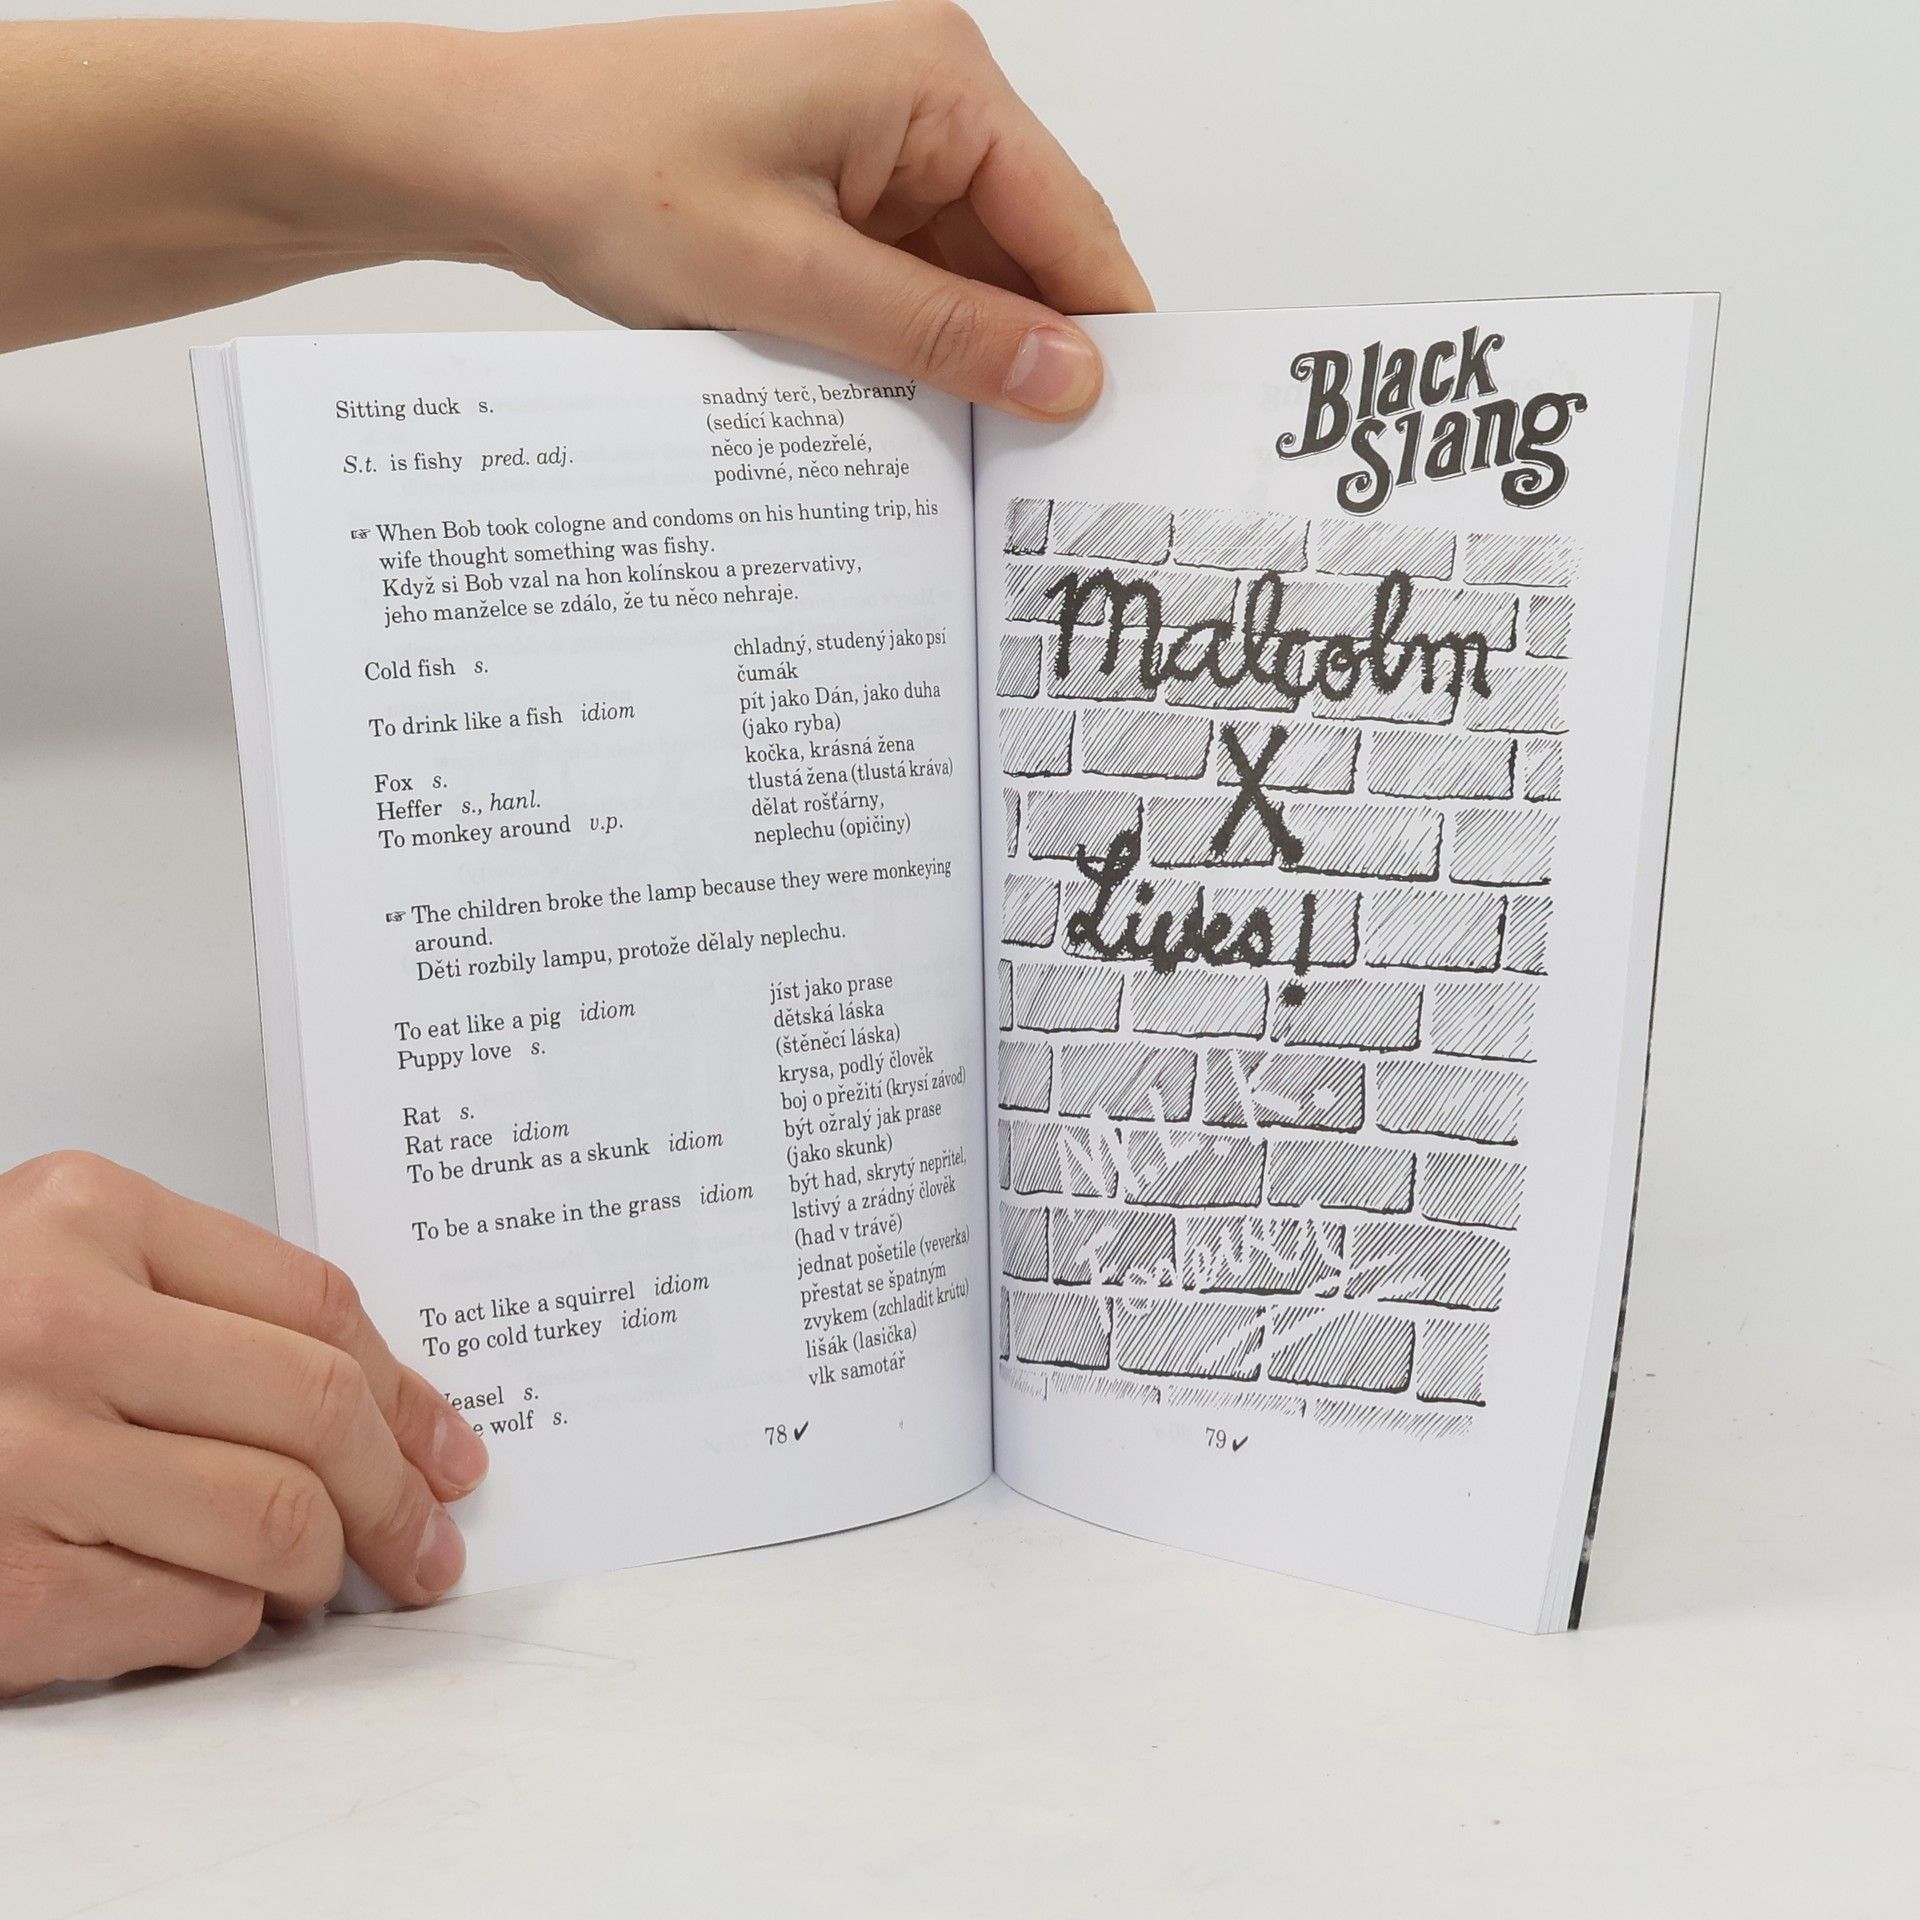 Sitting duck s. snadný terč, bezbranný
(sedící kachna)
S.t. is fishy pred. adj. něco je podezřelé,
podivné, něco nehraje
☞ When Bob took cologne and condoms on his hunting trip, his
wife thought something was fishy.
Když si Bob vzal na hon kolínskou a prezervativy,
jeho manželce se zdálo, že tu něco nehraje.
Cold fish s. chladný, studený jako psí
čumák
To drink like a fish idiom pít jako Dán, jako duha
(jako ryba)
Fox s. kočka, krásná žena
Heffer s., hanl. tlustá žena (tlustá kráva)
To monkey around v.p. dělat rošťárny,
neplechu (opičiny)
☞ The children broke the lamp because they were monkeying
around.
Děti rozbily lampu, protože dělaly neplechu.
To eat like a pig idiom jíst jako prase
Puppy love s. dětská láska
(štěněcí láska)
Rat s. krysa, podlý člověk
Rat race idiom boj o přežití (krysí závod)
To be drunk as a skunk idiom být ožralý jak prase
(jako skunk)
To be a snake in the grass idiom být had, skrytý nepřítel,
lstivý a zrádný člověk
(had v trávě)
To act like a squirrel idiom jednat pošetile (veverka)
To go cold turkey idiom přestat se špatným
zvykem (zchladit krůtu)
easel s. lišák (lasička)
e wolf s. vlk samotář
78 ✓
Black
Slang
Malcolm
X
Lives!
79 ✓